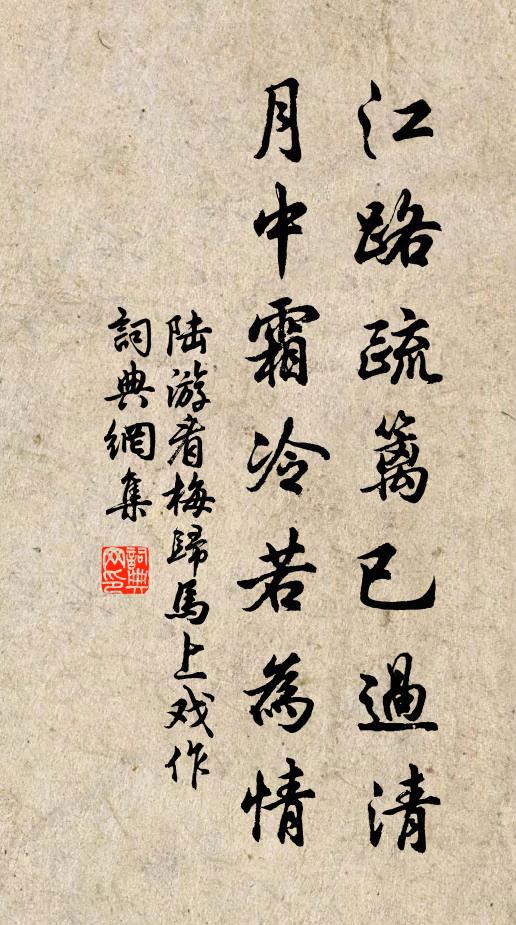 江路疏篱已過清
月中霜冷若為情
陆游看梅歸馬上戏作
詞典網集
詞典網印